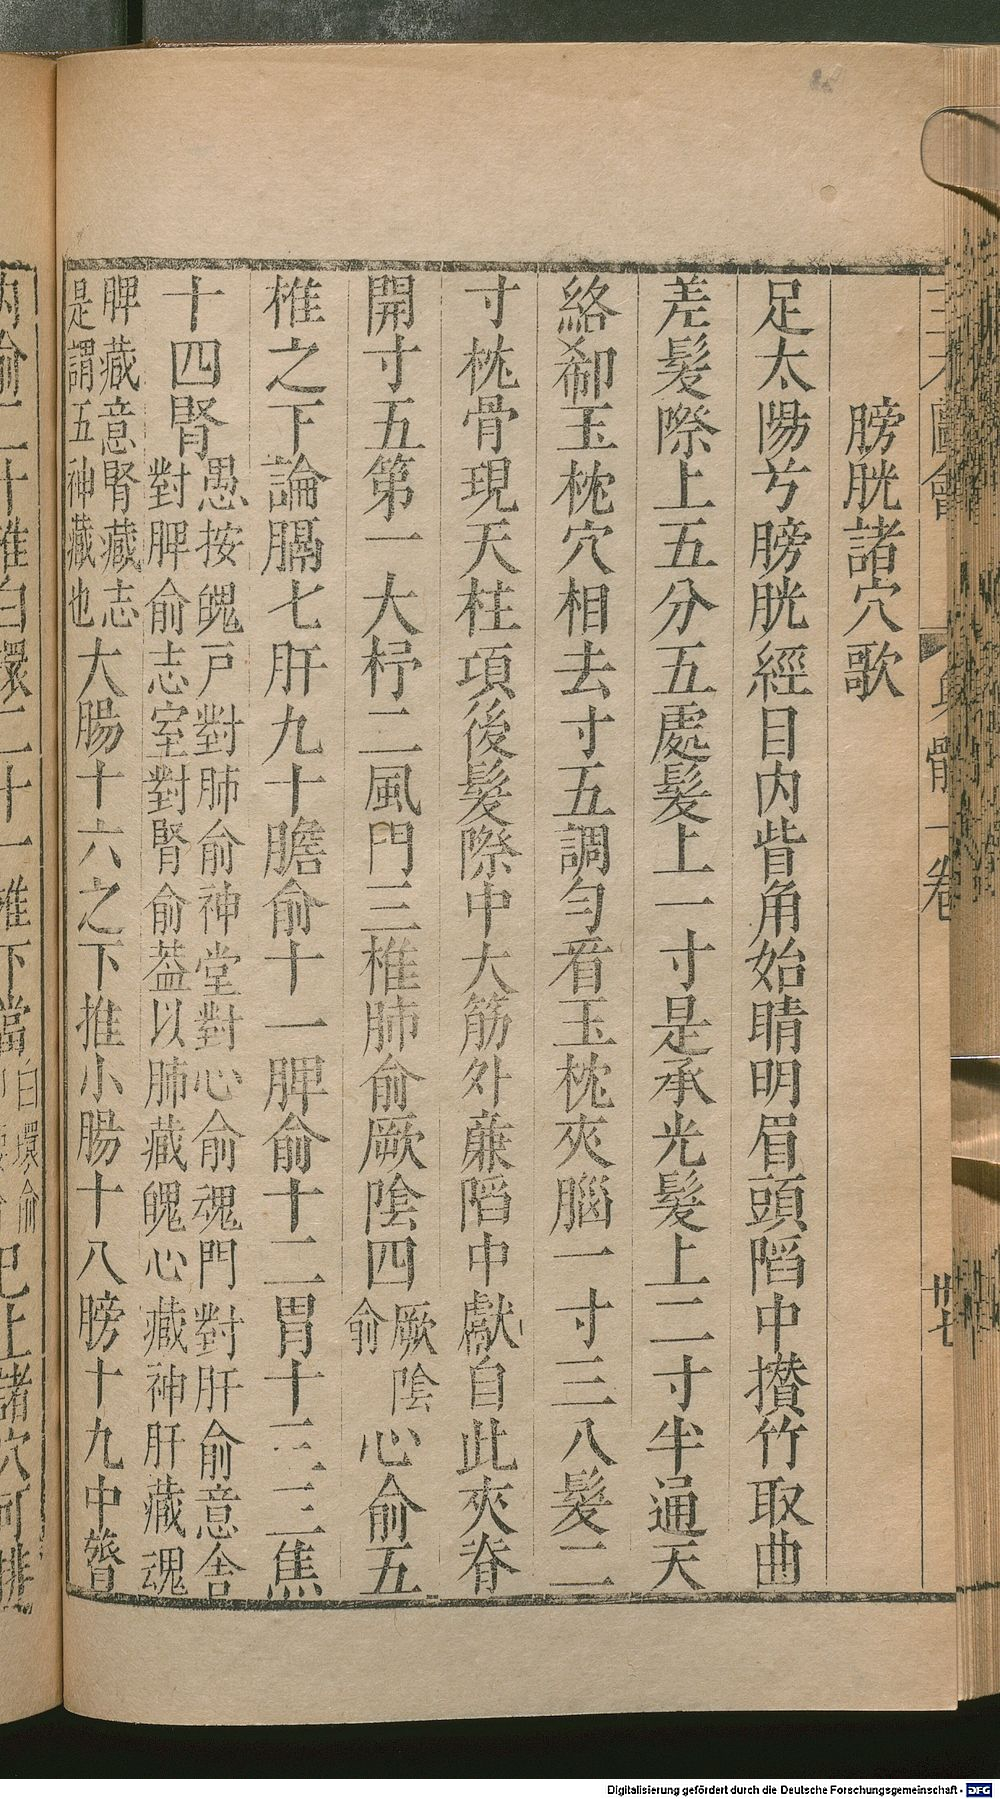 膀胱諸穴歌
足太陽兮膀胱經目内眥角始睛明眉頭陷中攅竹取曲
差髮際上五分五處髮上一寸是承光髮上二寸半通天
絡郄玉枕穴相去寸五調勻看玉枕夾腦一寸三八髮二
寸枕骨現天柱項後髮際中大筋外蔴陷中獻自此夾脊
開寸五第一大杼二風門三椎肺俞厥陰四厥陰俞心俞五
椎之下論膈七肝九十膽俞十一脾俞十二胃十三三焦
十四腎愚按魄戸對肺俞神堂對心俞魂門對肝俞意舍
對脾俞志室對腎俞葢以肺藏魄心藏神肝藏魂
脾藏意腎藏志
是謂五神藏也大腸十六之下推小腸十八膀十九中膂
俞二十椎白環二十一椎下當白環俞
上諸穴可
三才圖會
身體一卷
卅七
Digitalisierung gefördert durch die Deutsche Forschungsgemeinschaft - DFG